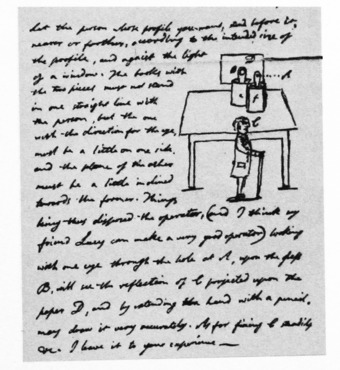 Let the person whose profile you want, stand before C,
nearer or farther, according to the intended size of
the profile, and against the light
of a window. The bottles with
the two pieces must not stand
in one straight line with
the person, but the one
with the direction for the eye,
must be a little on one side,
and the plane of the other
must be a little inclined
towards the former. Things
being thus disposed the operator, (and I think my
friend Lucy can make a very good operator) looking
with one eye through the hole at A, upon the glass
B, will see the reflection of C projected upon the
paper D, and by extending the hand with a pencil,
may draw it very accurately. As for fixing C steadily
&c. I leave it to your experience—
D
A
C